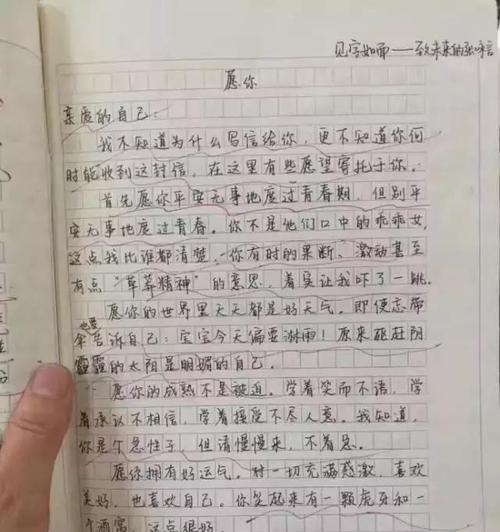 见字如面——致未来的张
愿你
亲爱的自己：
我不知道为什么写信给你，更不知道你何
时能收到这封信，在这里有些愿望寄托于你。
首先愿你平安无事地度过青春期，但别平
安无事地度过青春。你不是他们口中的乖乖女，
这点我比谁都清楚，你有时的果断、激动甚至
有点“草莽精神”的意思，着实让我吓了一跳。
愿你的世界里天天都是好天气。即便忘带
伞也要告诉自己：宝宝今天偏要淋雨！原来驱赶阴
霾的太阳是明媚的自己。
愿你的成熟不是被迫。学着笑而不语，学
着承认不相信，学着接受不尽人意。我知道，
你是个急性子，但请慢慢来，不着急。
愿你拥有好运气。对一切充满感激，喜欢
美好，也喜欢自己。你笑起来有一颗虎牙和一
个酒窝，这点很好。